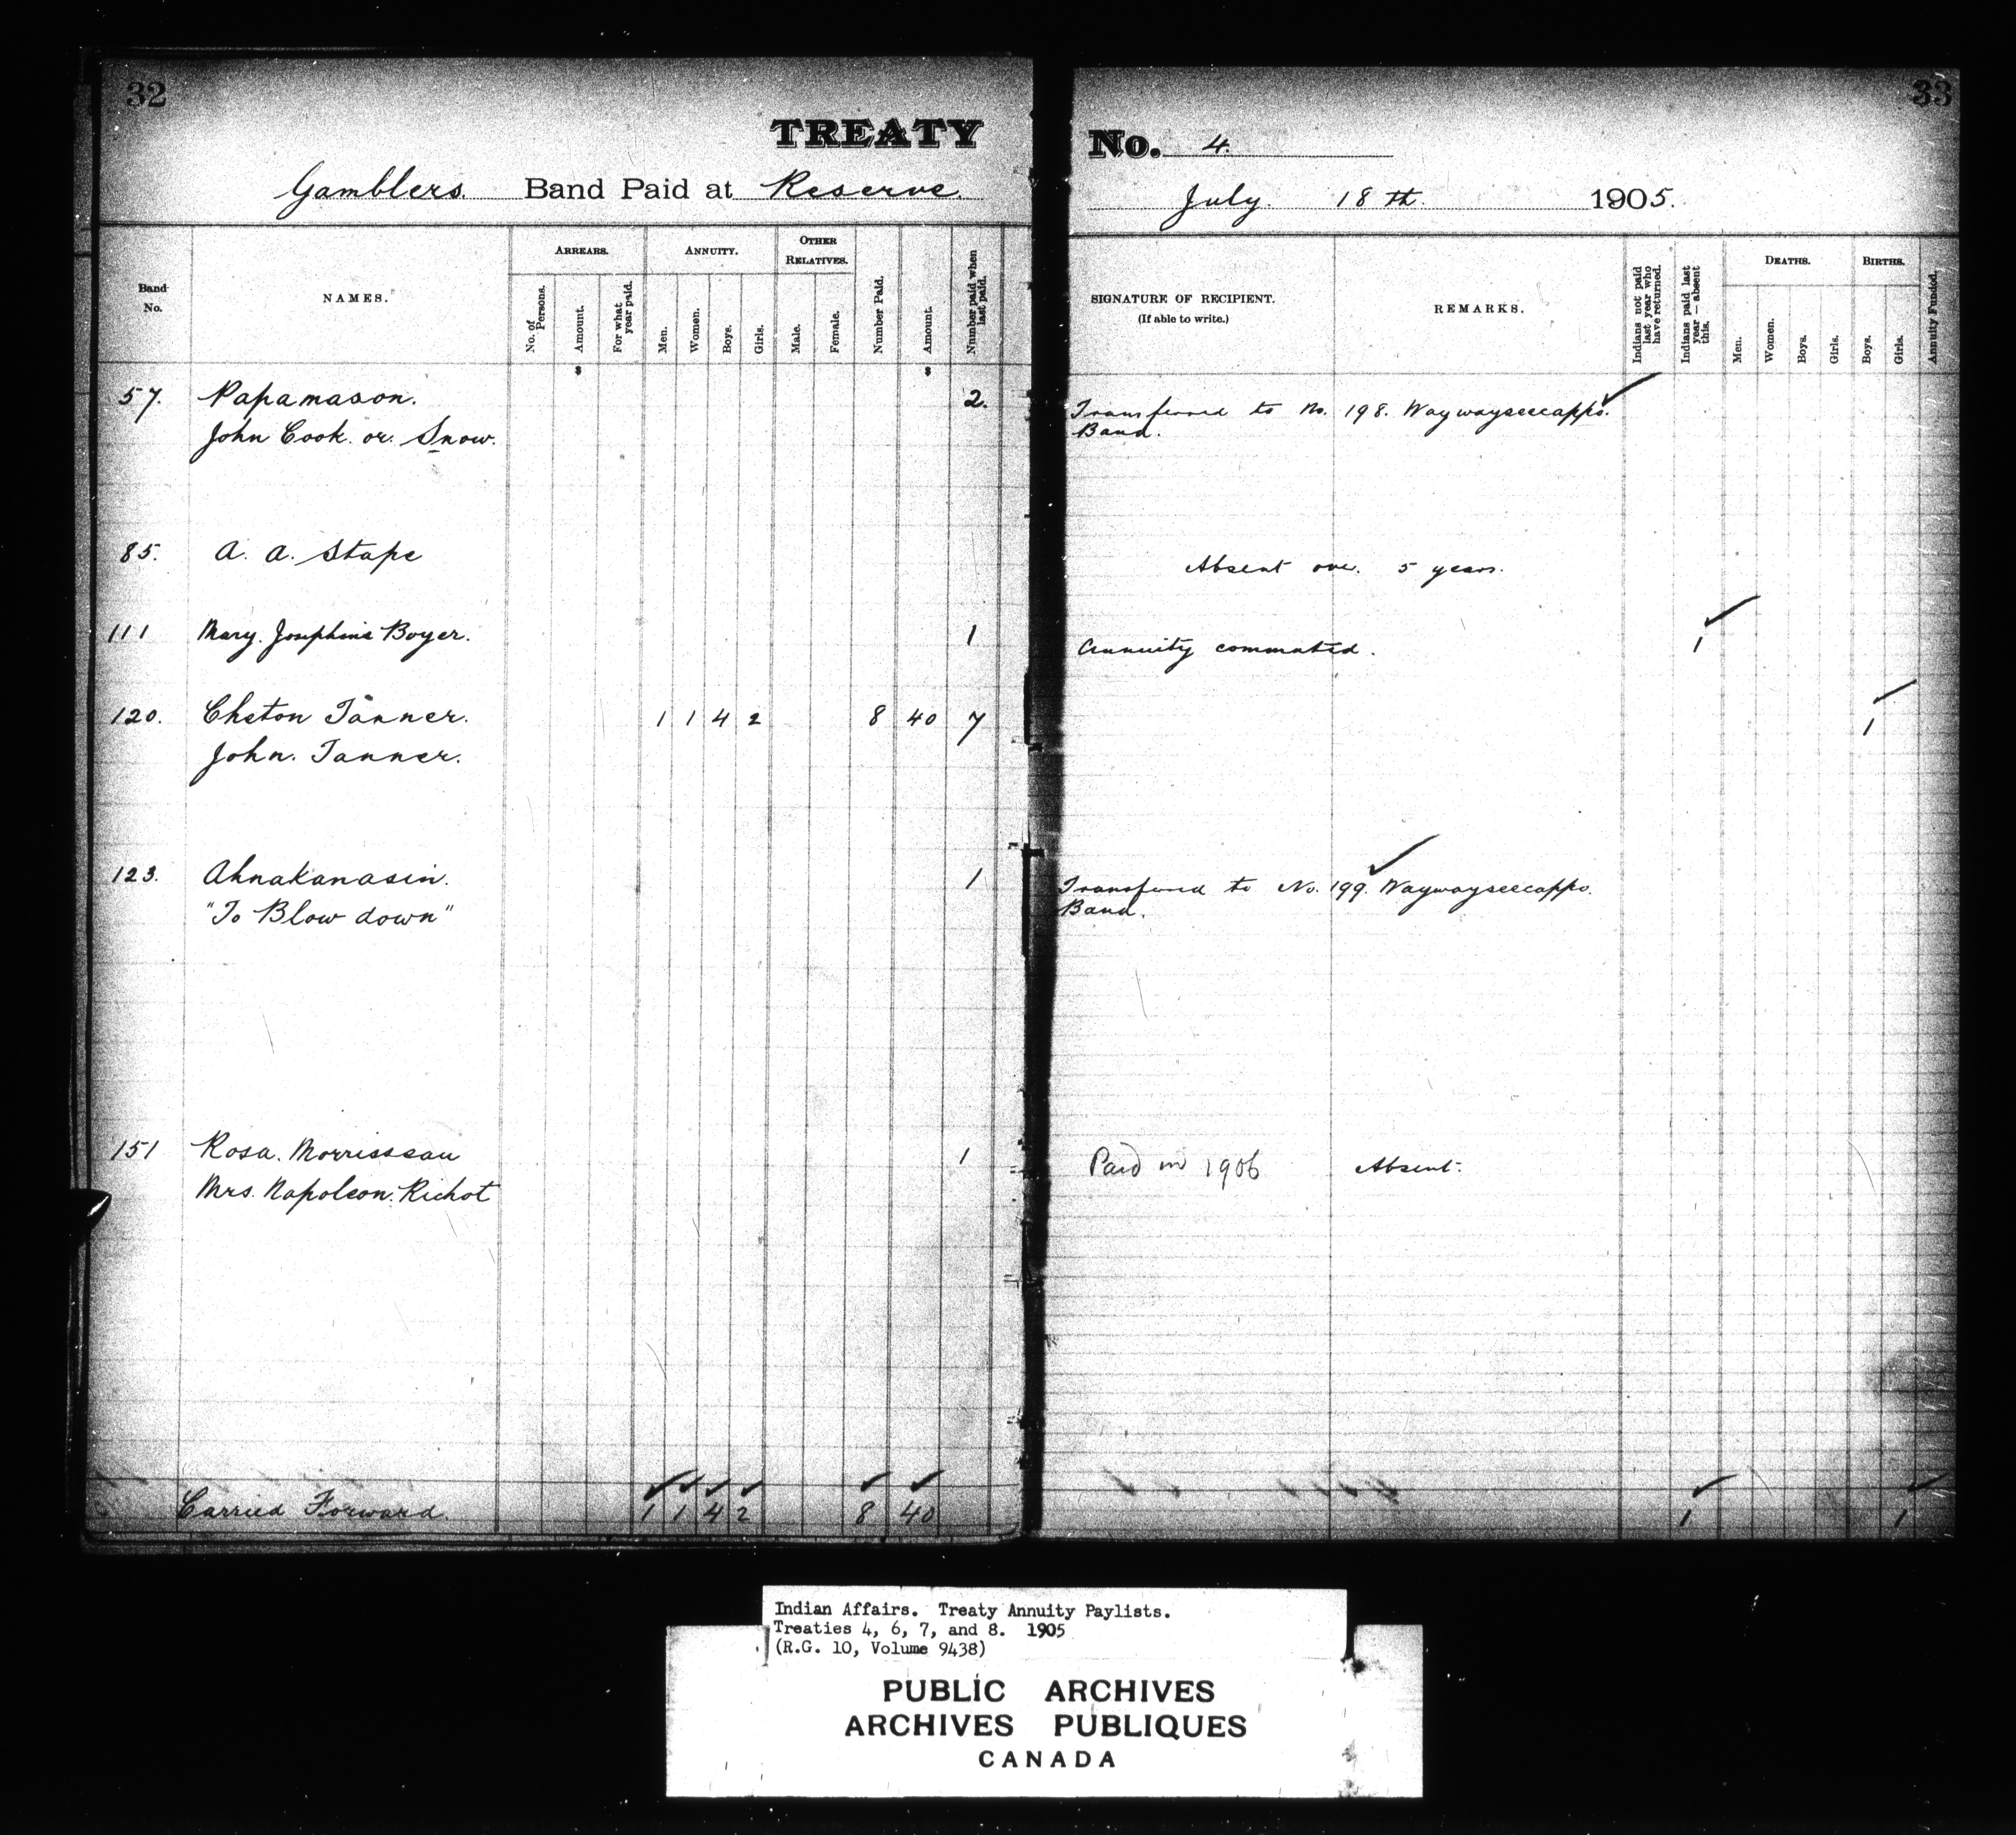 32
TREATY
Gamblers. Band Paid at Reserve.
Band No.
NAMES.
ARREARS.
No. of Persons.
Amount.
For what year paid.
ANNUITY.
Men.
Women.
Boys.
Girls.
OTHER RELATIVES.
Male.
Female.
Number Paid.
Amount.
Number paid when last paid.
$ $
57. Papamason. 2.
John Cook. or. Snow.
85. A. A. Stape
111 Mary. Josephine Boyer. 1
120. Cheton Tanner. 1 1 4 2 8 40 7
John. Tanner.
123. Ahnakanasin. 1
"To Blow down"
151 Rosa. Morrisseau 1
Mrs. Napoleon. Richot
Carried Forward. 1 1 4 2 8 40
33
No. 4.
July. 18th. 1905.
SIGNATURE OF RECIPIENT.
(If able to write.)
REMARKS.
Indians not paid last year who have returned.
Indians paid last year — absent this.
DEATHS.
Men.
Women.
Boys.
Girls.
BIRTHS.
Boys.
Girls.
Annuity Funded.
Transferred to No. 198. Waywayseecappo.
Band.
Absent over. 5 years.
Annuity commuted. 1
1
Transferred to No. 199. Waywayseecappo.
Band.
Paid in 1906 Absent.
1 1
Indian Affairs. Treaty Annuity Paylists.
Treaties 4, 6, 7, and 8. 1905
(R.G. 10, Volume 9438)
PUBLIC ARCHIVES
ARCHIVES PUBLIQUES
CANADA